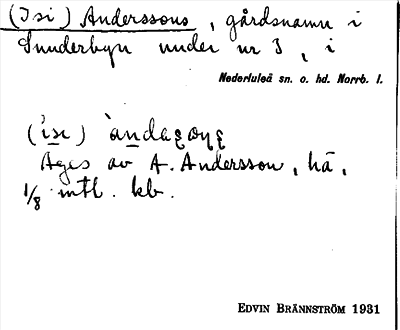 (Isi) Anderssons, gårdsnamn i
Sunderbyn under nr 3, i
Nederluleå sn. o. hd. Norrb. l.
Äges av A. Andersson, hä,
1/8 mtl. kb.
EDVIN BRÄNNSTRÖM 1931